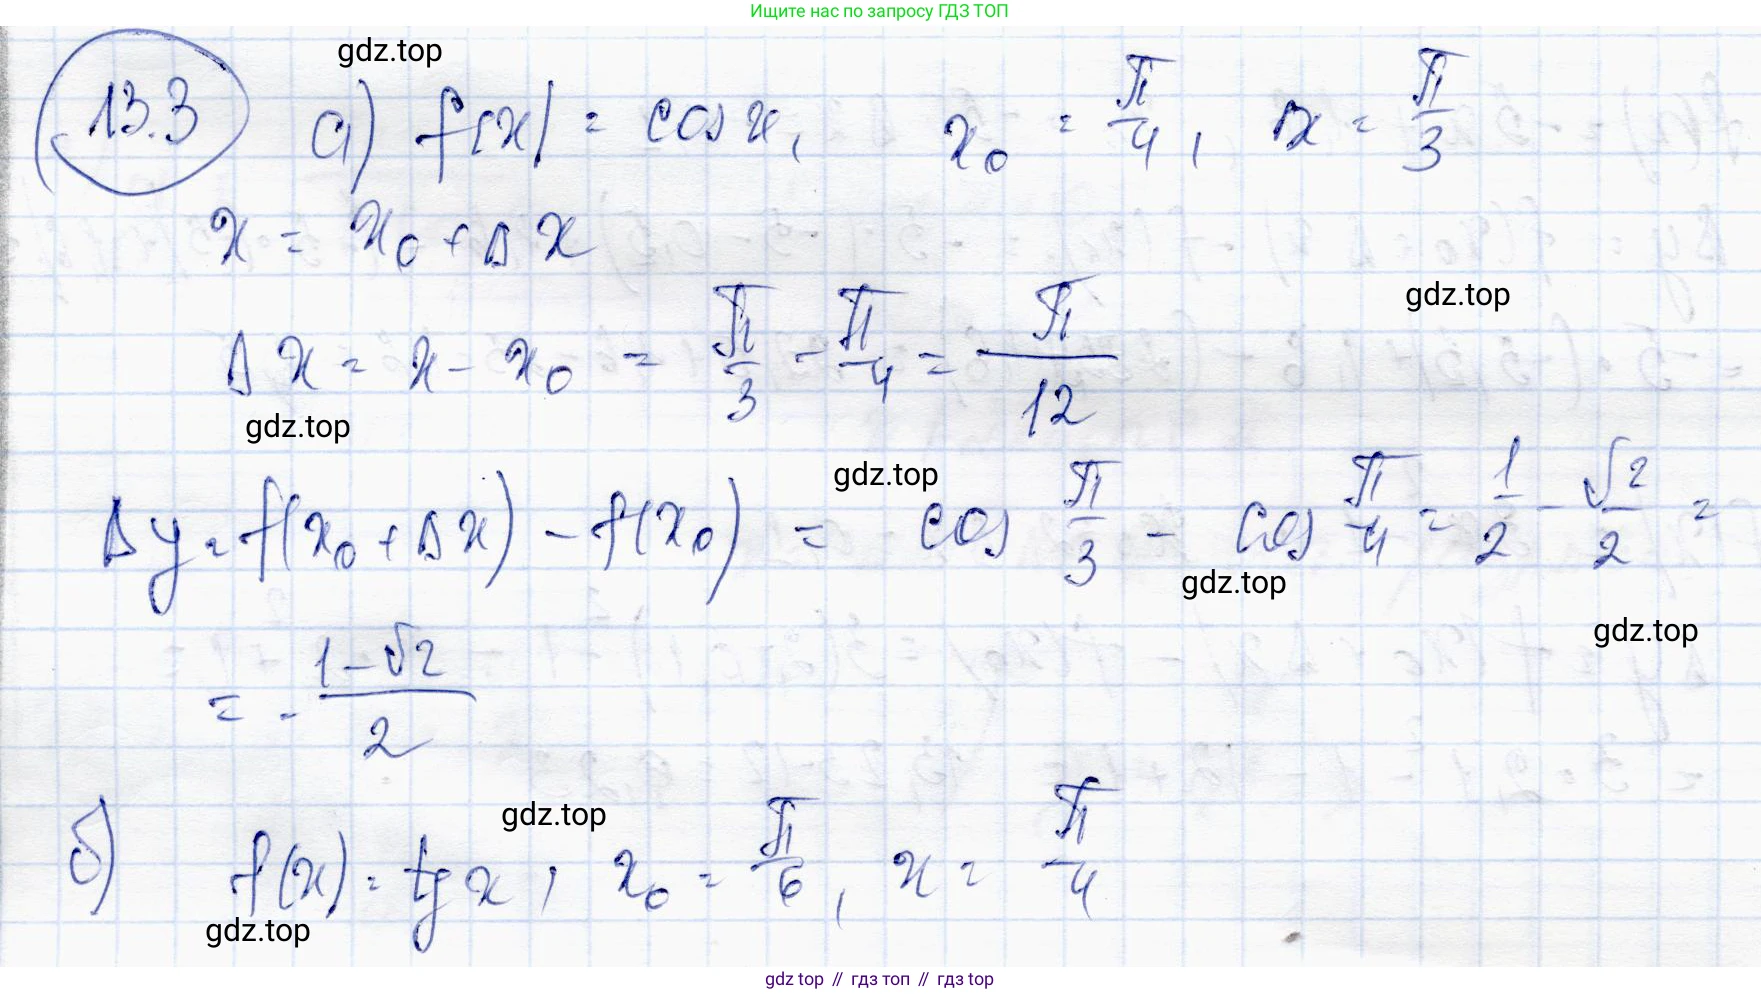 Ищите нас по запросу ГДЗ ТОП
gdz.top
13.3 а) f(x) = cos x, x₀ = π/4, x = π/3
x = x₀ + Δx
gdz.top
Δx = x - x₀ = π/3 - π/4 = π/12
gdz.top
gdz.top
Δy = f(x₀ + Δx) - f(x₀) = cos π/3 - cos π/4 = 1/2 - √2/2 =
gdz.top
gdz.top
= - (1-√2)/2
gdz.top
б) f(x) = tg x, x₀ = π/6, x = π/4
gdz.top
gdz top // гдз топ // гдз top